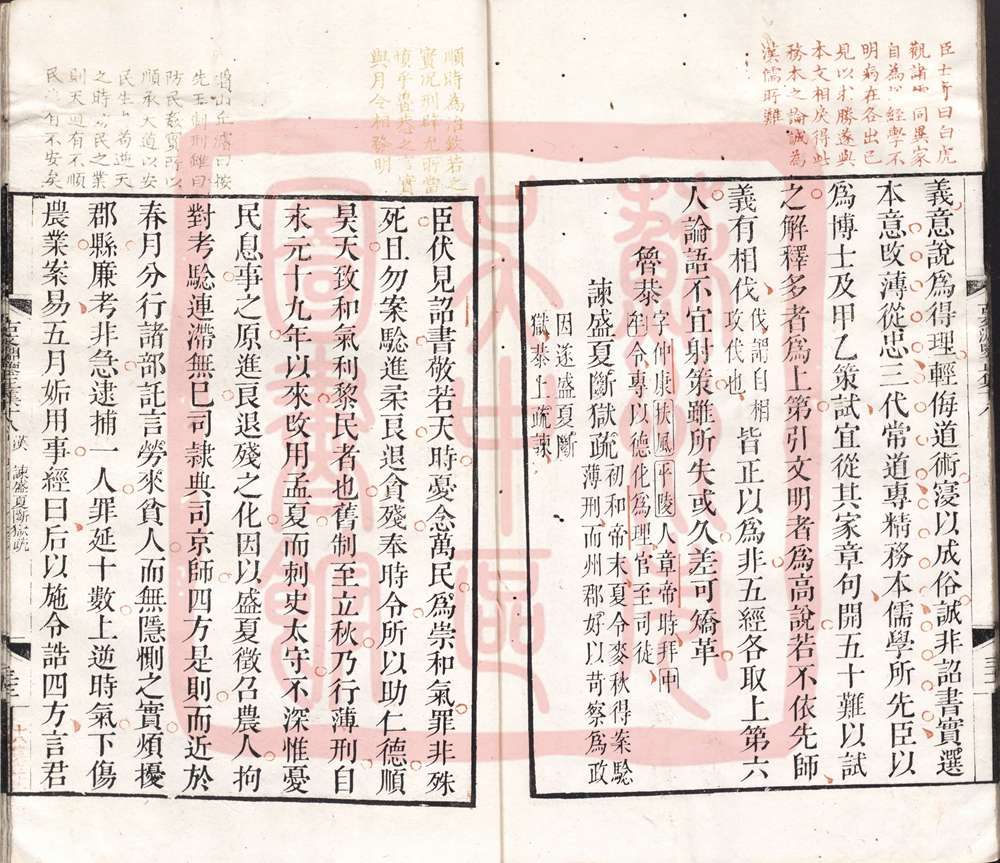 臣士奇曰白虎
觀講五經同異家
自為說經學不
明病在各出己
見以求勝遂與
本文相戾得此
務本之論誠為
漢儒所難
義意說爲得理輕侮道術寖以成俗誠非詔書實選
本意攺薄從忠三代常道專精務本儒學所先臣以
爲博士及甲乙策試宜從其家章句開五十難以試
之解釋多者爲上第引文明者爲高說若不依先師
義有相伐伐謂自相
攻伐也皆正以爲非五經各取上第六
人論語不宜射策雖所失或久差可矯革
魯恭字仲康扶風平陵人章帝時拜中
牟令專以德化爲理官至司徒
諫盛夏斷獄疏初和帝末夏令麥秋得案驗
薄刑而州郡好以苛察爲政
因遂盛夏斷
獄恭上疏諫
順時為治欽若之
實况刑辟尤所當
慎乎魯恭之言實
與月令相發明
瓊山丘濬曰按
先王制刑雖曰
防民姦實所以
順承天道以安
民生苟逆天
之時民之業
則天道有不順
民有不安矣
臣伏見詔書敬若天時憂念萬民爲崇和氣罪非殊
死且勿案驗進柔良退貪殘奉時令所以助仁德順
昊天致和氣利黎民者也舊制至立秋乃行薄刑自
永元十九年以來攺用孟夏而刺史太守不深惟憂
民息事之原進良退殘之化因以盛夏徵召農人拘
對考驗連滯無已司隷典司京師四方是則而近於
春月分行諸部託言勞來貧人而無隱惻之實煩擾
郡縣廉考非急逮捕一人罪延十數上逆時氣下傷
農業案易五月姤用事經曰后以施令誥四方言君
漢 諫盛夏斷獄疏